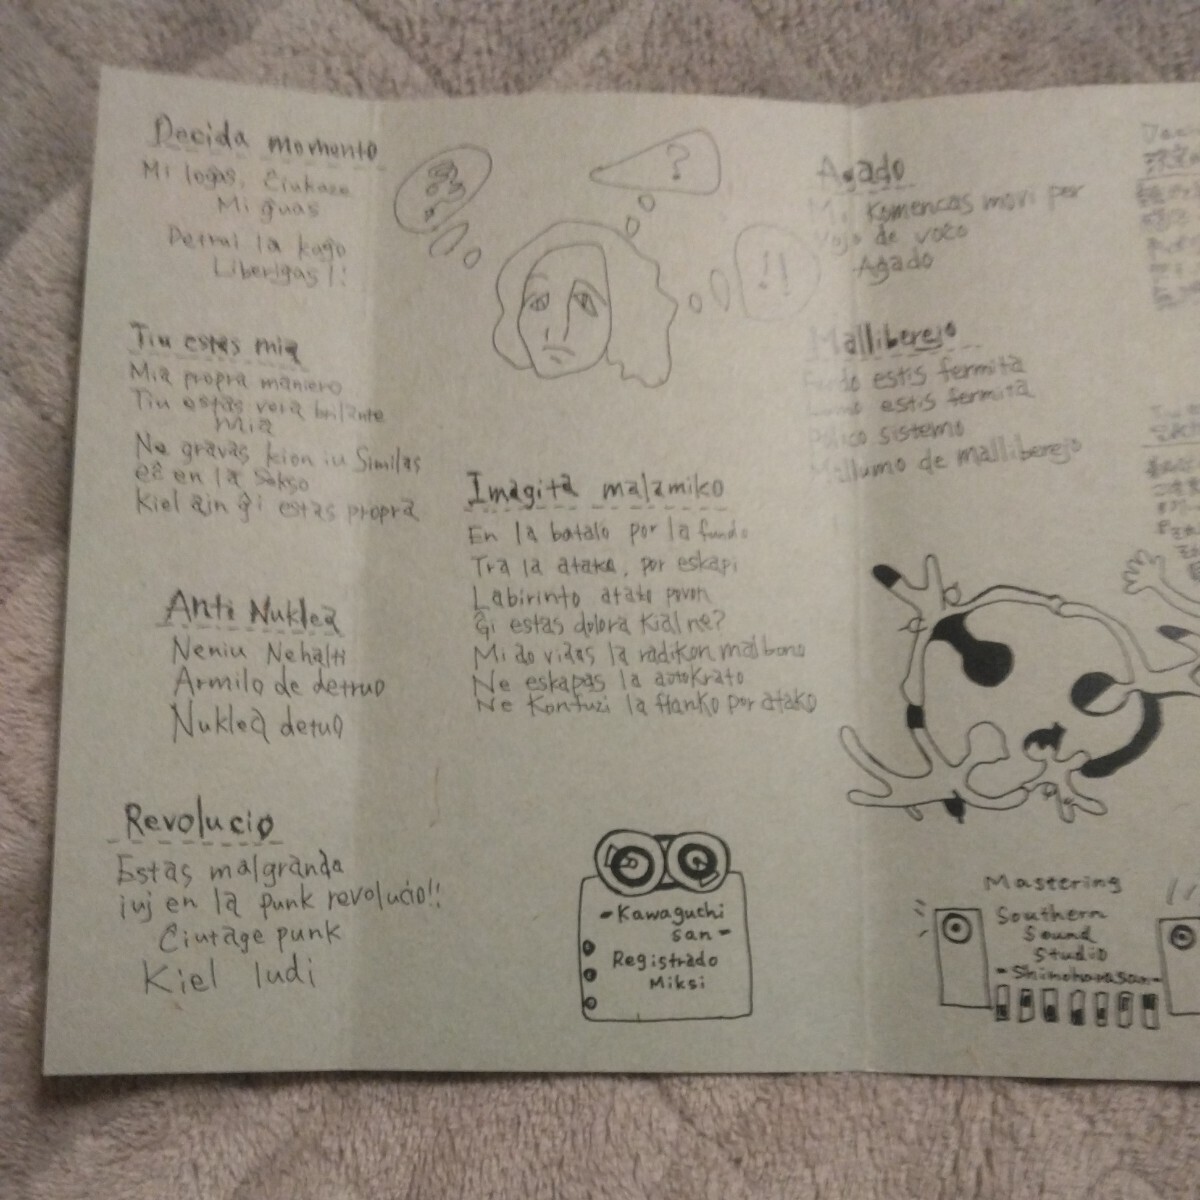 Decida momento
Mi logas, Ĉiukaze
Mi ĝuas
Detrui la kaĝo
Liberigas!!
Tiu estas mia
Mia propra maniero
Tiu estas vera brilante
mia
Ne gravas kion iu Similas
eĉ en la Sekso
Kiel ajn ĝi estas propra
Anti Nuklea
Neniu Nehalti
Armilo de detruo
Nuklea detuo
Revolucio
Estas malgranda
iuj en la punk revolucio!!
Ĉiutage punk
Kiel ludi
?
!!
Imagita malamiko
En la batalo por la fundo
Tra la atako, por eskapi
Labirinto atako povon
Ĝi estas dolora Kial ne?
Mi do vidas la radikon malbono
Ne eskapas la autokrato
Ne Konfuzi la flanko por atako
-Kawaguchi
san-
Registrado
Miksi
Agado
Komencas movi per
de voĉo
Agado
Malliberejo
estis fermita
estis fermita
Polico sistemo
Mallumo de malliberejo
Mastering
Southern
Sound
Studio
-Shimoharasan-